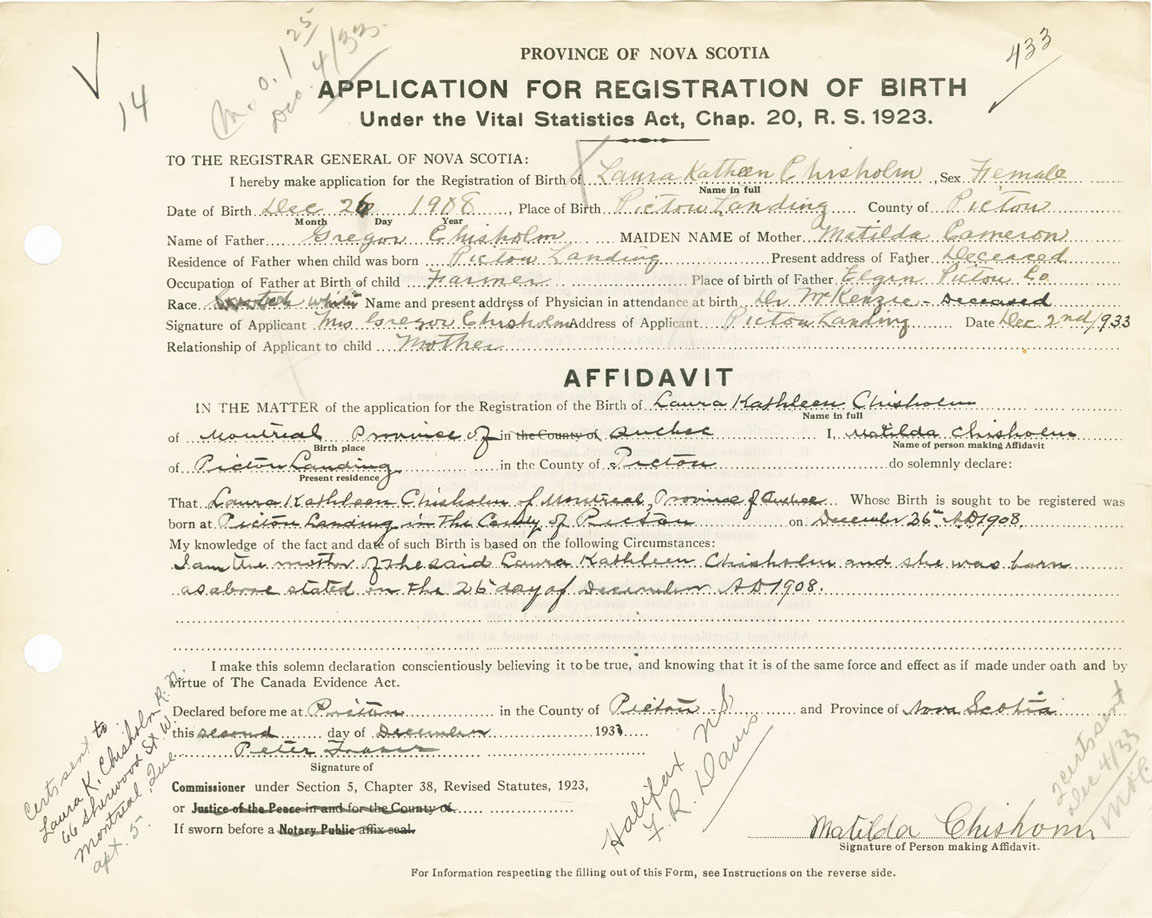 M. O. 1 25
Dec. 4/33.
14
433
PROVINCE OF NOVA SCOTIA
APPLICATION FOR REGISTRATION OF BIRTH
Under the Vital Statistics Act, Chap. 20, R. S. 1923.
TO THE REGISTRAR GENERAL OF NOVA SCOTIA:
I hereby make application for the Registration of Birth of Laura Kathleen Chisholm, Sex Female
Name in full
Date of Birth Dec 26 1908, Place of Birth Pictou Landing County of Pictou
Month Day Year
Name of Father Gregor Chisholm MAIDEN NAME of Mother Matilda Cameron
Residence of Father when child was born Pictou Landing Present address of Father Deceased
Occupation of Father at Birth of child Farmer Place of birth of Father Elgin Pictou Co.
Race Scotch white Name and present address of Physician in attendance at birth Dr McKenzie - Deceased
Signature of Applicant Mrs Gregor Chisholm Address of Applicant Pictou Landing Date Dec 2nd 1933
Relationship of Applicant to child Mother
AFFIDAVIT
IN THE MATTER of the application for the Registration of the Birth of Laura Kathleen Chisholm
Name in full
of Montreal Province of in the County of Quebec I, Matilda Chisholm
Birth place Name of person making Affidavit
of Pictou Landing in the County of Pictou do solemnly declare:
Present residence
That Laura Kathleen Chisholm of Montreal, Province of Quebec Whose Birth is sought to be registered was
born at Pictou Landing in the County of Pictou on December 26th AD 1908.
My knowledge of the fact and date of such Birth is based on the following Circumstances:
I am the mother of the said Laura Kathleen Chisholm and she was born
as above stated on the 26th day of December AD 1908.
I make this solemn declaration conscientiously believing it to be true, and knowing that it is of the same force and effect as if made under oath and by
virtue of The Canada Evidence Act.
Declared before me at Pictou in the County of Pictou and Province of Nova Scotia
this second day of December 1933
Peter Fraser
Signature of
Commissioner under Section 5, Chapter 38, Revised Statutes, 1923,
or Justice of the Peace in and for the County of
If sworn before a Notary Public affix seal.
Matilda Chisholm
Signature of Person making Affidavit.
For Information respecting the filling out of this Form, see Instructions on the reverse side.
Certs sent to
Laura K. Chisholm R. N.
66 Sherwood St. W.
Montreal, Que
apt. 5.
Halifax NS
F. R. Davis
2 Certs sent
Dec 4/33